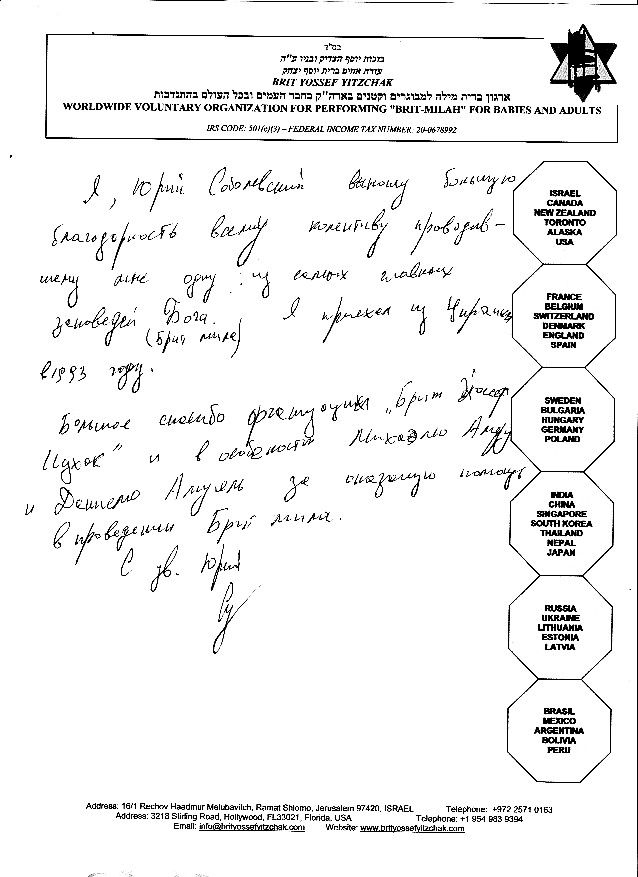 בס"ד
בזכות יוסף הצדיק ובניו ע"ה
עזרת אחים ברית יוסף יצחק
BRIT YOSSEF YITZCHAK
ארגון ברית מילה למבוגרים וקטנים בארה"ק בחבר העמים ובכל העולם בהתנדבות
WORLDWIDE VOLUNTARY ORGANIZATION FOR PERFORMING "BRIT-MILAH" FOR BABIES AND ADULTS
IRS CODE: 501(c)(3) – FEDERAL INCOME TAX NUMBER: 20-0678992
Я, Юрий Соболевский выношу большую
благодарность всему колективу проводив-
шему мне одну из самых главных
заповедей Бога. Я приехал из Украины
(Брит мила)
в 1993 году.
Большое спасибо организации "Брит Йосеф
Ицхак" и в особености Михаэлю
и Даниелю за оказаную помощь
в проведении Брит мила.
С ув. Юрий
ISRAEL
CANADA
NEW ZEALAND
TORONTO
ALASKA
USA
FRANCE
BELGIUM
SWITZERLAND
DENMARK
ENGLAND
SPAIN
SWEDEN
BULGARIA
HUNGARY
GERMANY
POLAND
INDIA
CHINA
SINGAPORE
SOUTH KOREA
THAILAND
NEPAL
JAPAN
RUSSIA
UKRAINE
LITHUANIA
ESTONIA
LATVIA
BRASIL
MEXICO
ARGENTINA
BOLIVIA
PERU
Address: 16/1 Rechov Haadmur Melubavitch, Ramat Shlomo, Jerusalem 97420, ISRAEL Telephone: +972 2571 0163
Address: 3218 Stirling Road, Hollywood, FL33021, Florida, USA Telephone: +1 954 983 9394
Email: info@brityossefyitzchak.com Website: www.brityossefyitzchak.com